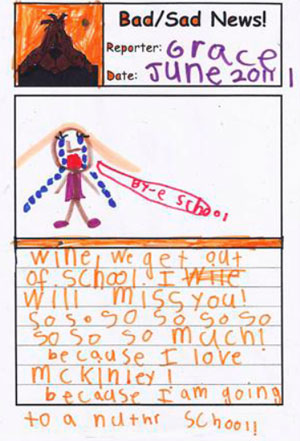 Bad/Sad News!
Reporter: Grace
Date: June 2011
BY-e School
wine, we get out
of school. I Wile
will miss you!
So so so so so so
so so so much!
because I love
mckinley!
because I am going
to a nuthr school!!